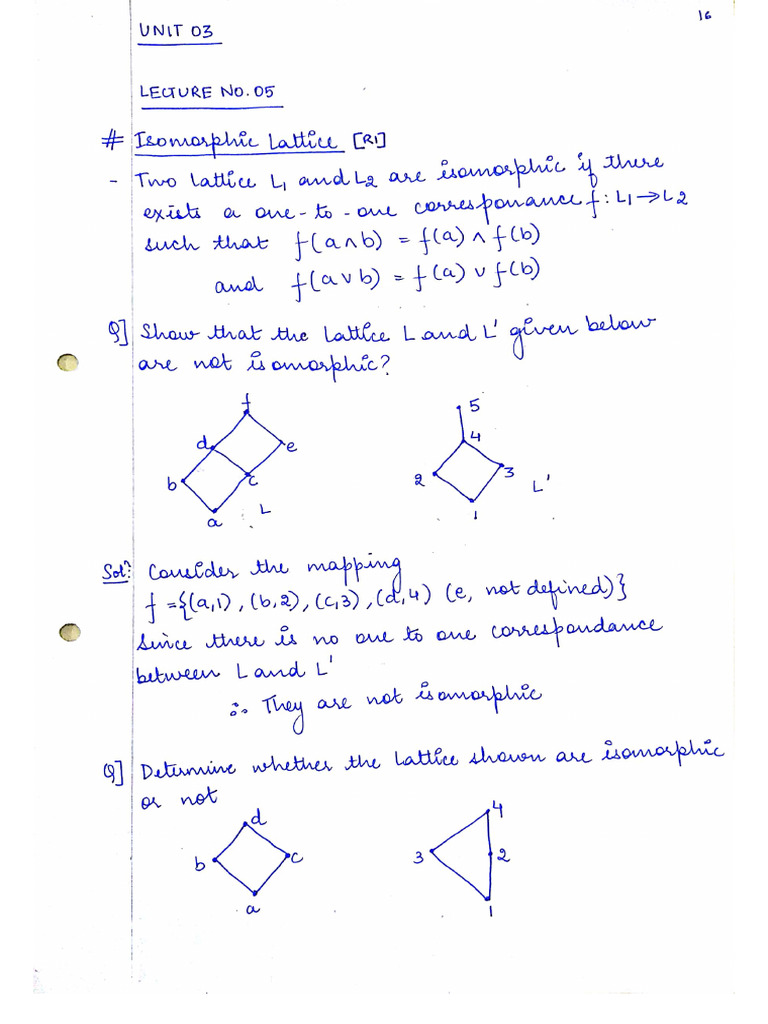 16
UNIT 03
LECTURE NO. 05
# Isomorphic Lattice [R1]
- Two lattice L1 and L2 are isomorphic if there
exists a one-to-one correspondance f: L1 → L2
such that f(a ∧ b) = f(a) ∧ f(b)
and f(a ∨ b) = f(a) ∨ f(b)
Q] Show that the lattice L and L' given below
are not isomorphic?
f
d
e
b
c
a
L
5
4
2
3
1
L'
Solⁿ: Consider the mapping
f = {(a,1), (b,2), (c,3), (d,4) (e, not defined)}
Since there is no one to one correspondance
between L and L'
∴ They are not isomorphic
Q] Determine whether the lattice shown are isomorphic
or not
d
b
c
a
4
3
2
1